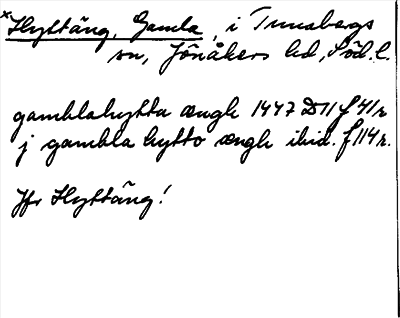 *Hyttäng, Gamla, i Tunabergs
sn, Jönåkers hd, Söd. l.
gamblahytta ængh 1447 D11 f 41/r
j gambla hytto ængh ibid. f 114 r.
Jfr Hyttäng!